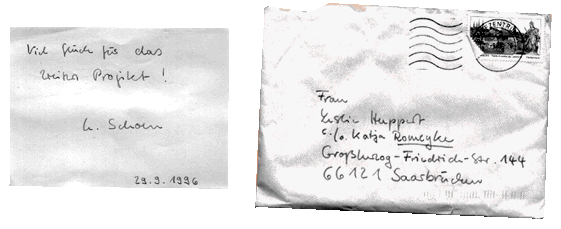 Viel Glück für das
weitere Projekt !
U. Schoen
29.9.1996
Frau
Leslie Huppert
c/o Katja Romeyke
Großherzog-Friedrich-Str. 144
66121 Saarbrücken